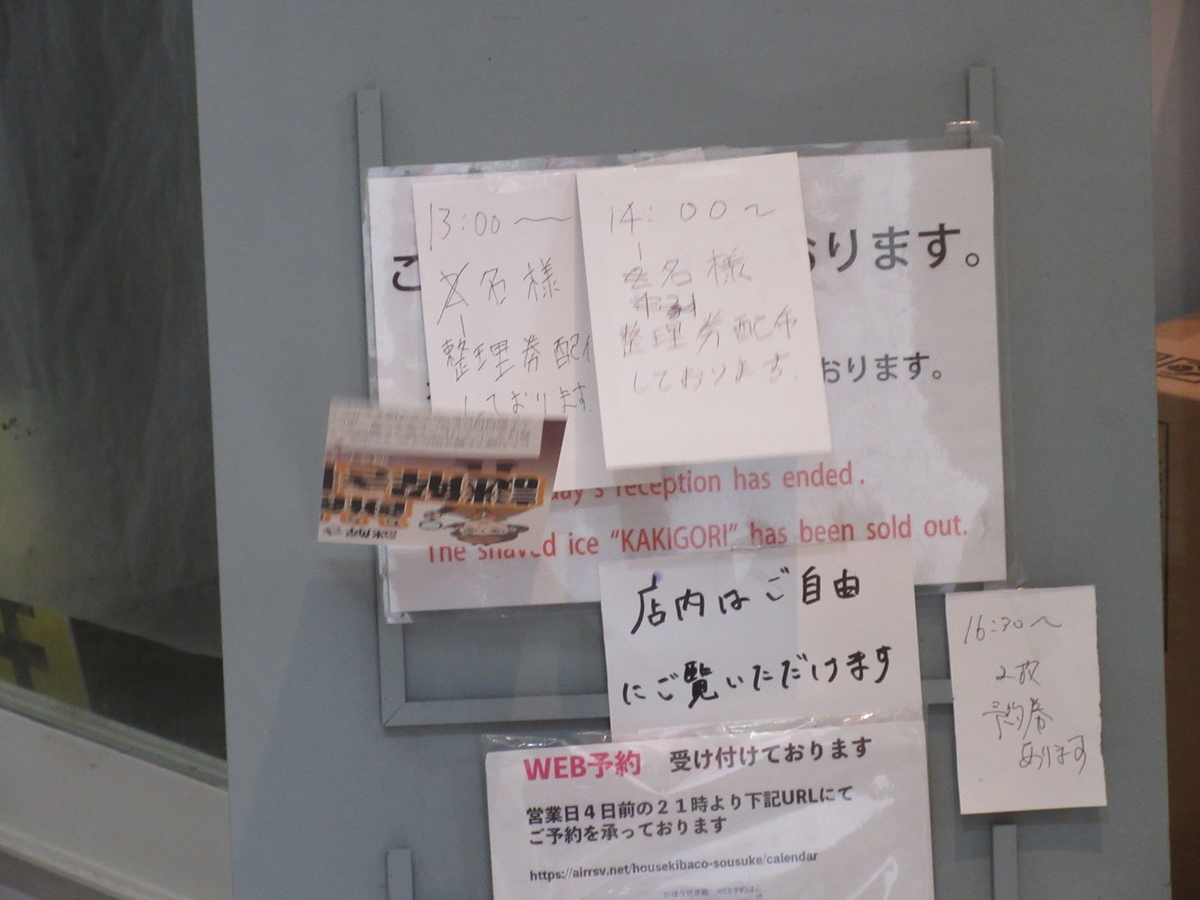 13:00〜
名様
1
整理券配
しております
14:00〜
1
名様
整理券配布
しております。
おります。
おります。
day's reception has ended.
The shaved ice "KAKIGORI" has been sold out.
店内はご自由
にご覧いただけます
16:30〜
2枚
予約券
あります
WEB予約 受け付けております
営業日4日前の21時より下記URLにて
ご予約を承っております
https://airrsv.net/housekibaco-sousuke/calendar